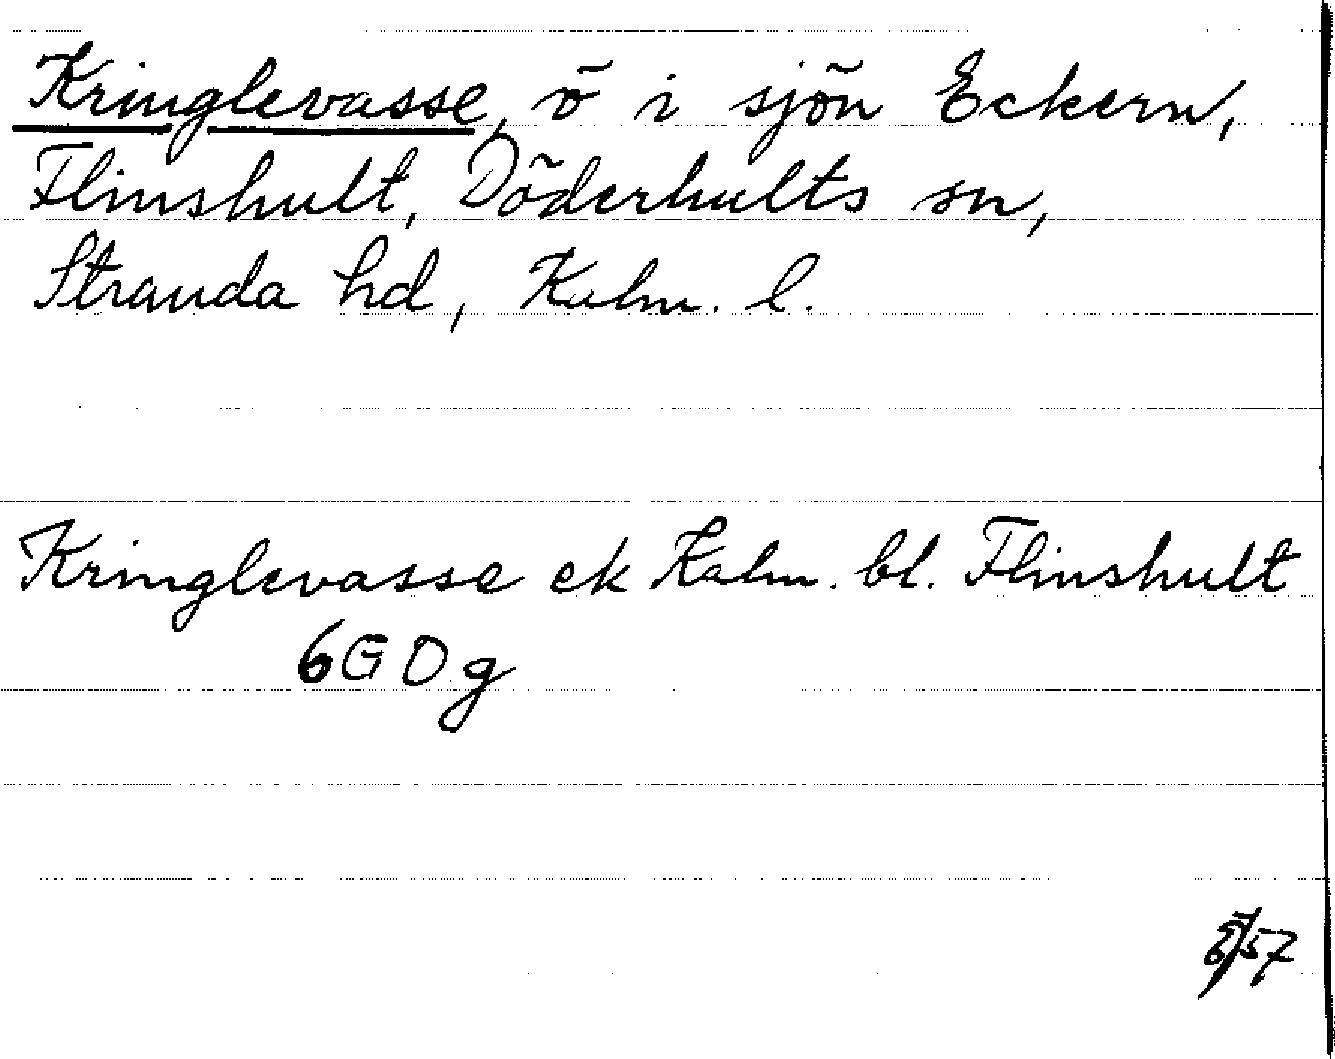 Kringlevasse, ö i sjön Eckern,
Flinshult, Döderhults sn,
Stranda hd, Kalm. l.
Kringlevasse ek Kalm. bl. Flinshult
6GDg